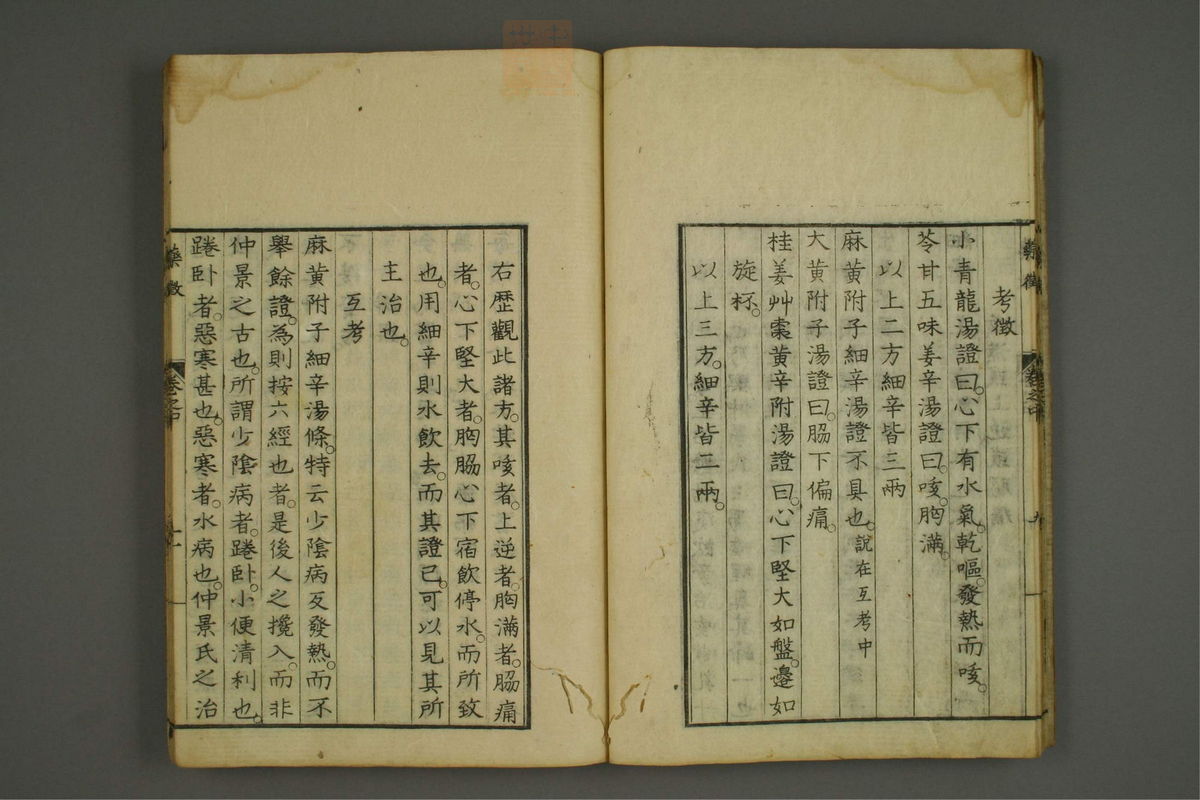 考徵
小青龍湯證曰。心下有水氣。乾嘔。發熱而咳。
苓甘五味姜辛湯證曰。咳。胸滿。
以上二方細辛皆三兩
麻黃附子細辛湯證不具也。說在互考中
大黃附子湯證曰。脇下偏痛。
桂姜艸棗黃辛附湯證曰。心下堅大如盤。邊如
旋杯。
以上三方。細辛皆二兩。
右歷觀此諸方。其咳者。上逆者。胸滿者。脇痛
者。心下堅大者。胸脇心下宿飲停水。而所致
也。用細辛則水飲去。而其證已。可以見其所
主治也。
互考
麻黃附子細辛湯條。特云少陰病反發熱。而不
舉餘證。為則按六經也者。是後人之攙入。而非
仲景之古也。所謂少陰病者。踡卧。小便清利也。
踡卧者。惡寒甚也。惡寒者。水病也。仲景氏之治
藥徵
卷之中